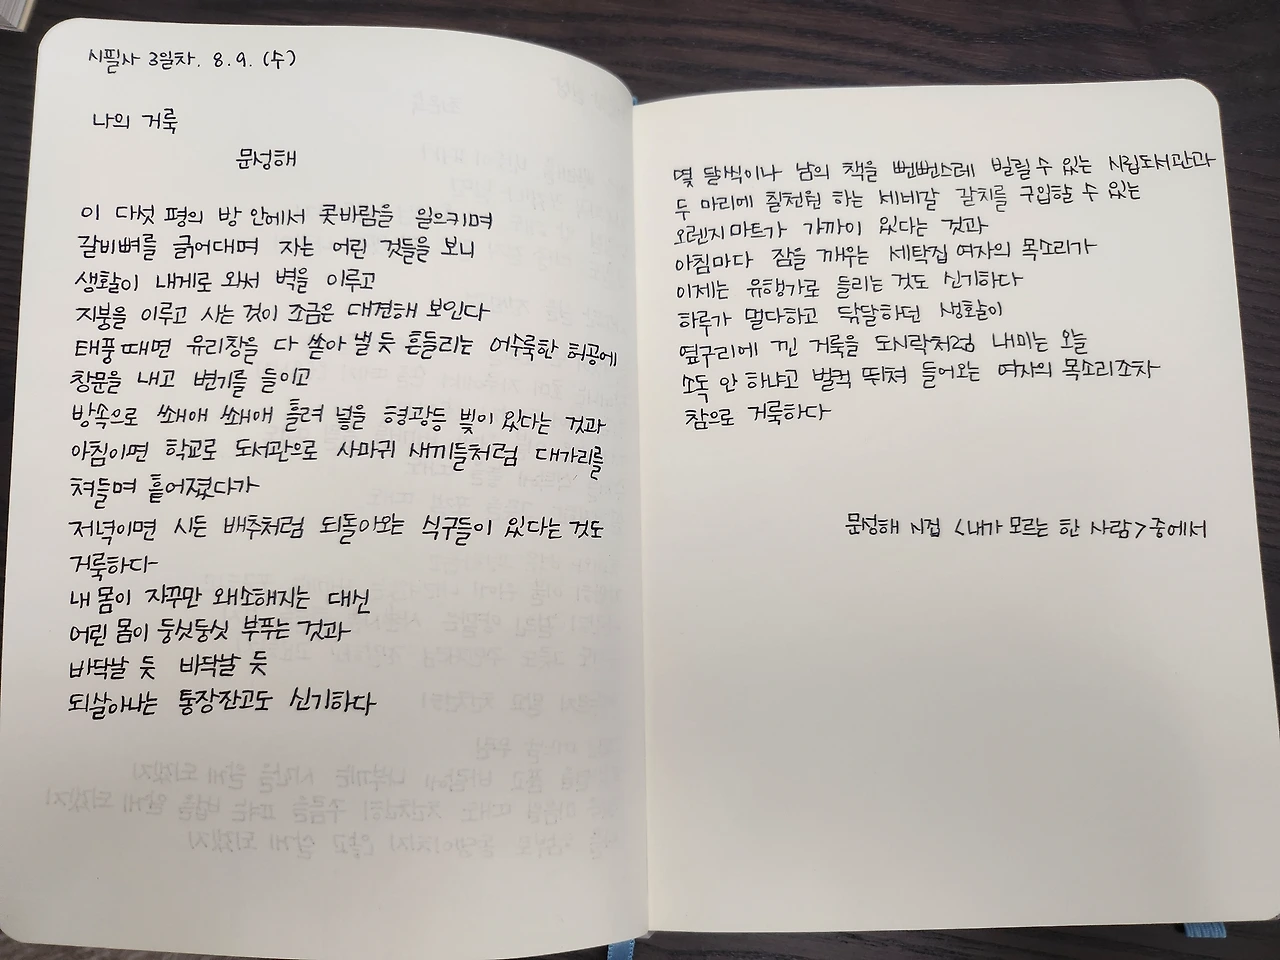 시필사 3일차. 8.9. (수)
나의 거룩
문성해
이 다섯 평의 방 안에서 콧바람을 일으키며
갈비뼈를 긁어대며 자는 어린 것들을 보니
생활이 내게로 와서 벽을 이루고
지붕을 이루고 사는 것이 조금은 대견해 보인다
태풍 때면 유리창을 다 쏟아 낼 듯 흔들리는 어수룩한 허공에
창문을 내고 변기를 들이고
방속으로 쐐애 쐐애 흘려 넣을 형광등 빛이 있다는 것과
아침이면 학교로 도서관으로 사마귀 새끼들처럼 대가리를
쳐들며 흩어졌다가
저녁이면 시든 배추처럼 되돌아오는 식구들이 있다는 것도
거룩하다
내 몸이 자꾸만 왜소해지는 대신
어린 몸이 둥싯둥싯 부푸는 것과
바닥날 듯 바닥날 듯
되살아나는 통장잔고도 신기하다
몇 달씩이나 남의 책을 뻔뻔스레 빌릴 수 있는 시립도서관과
두 마리에 칠천원 하는 세네갈 갈치를 구입할 수 있는
오렌지 마트가 가까이 있다는 것과
아침마다 잠을 깨우는 세탁집 여자의 목소리가
이제는 유행가로 들리는 것도 신기하다
하루가 멀다하고 닦달하던 생활이
옆구리에 낀 거룩을 도시락처럼 내미는 오늘
소독 안 하냐고 벌컥 뛰쳐 들어오는 여자의 목소리조차
참으로 거룩하다
문성해 시집 <내가 모르는 한 사람> 중에서